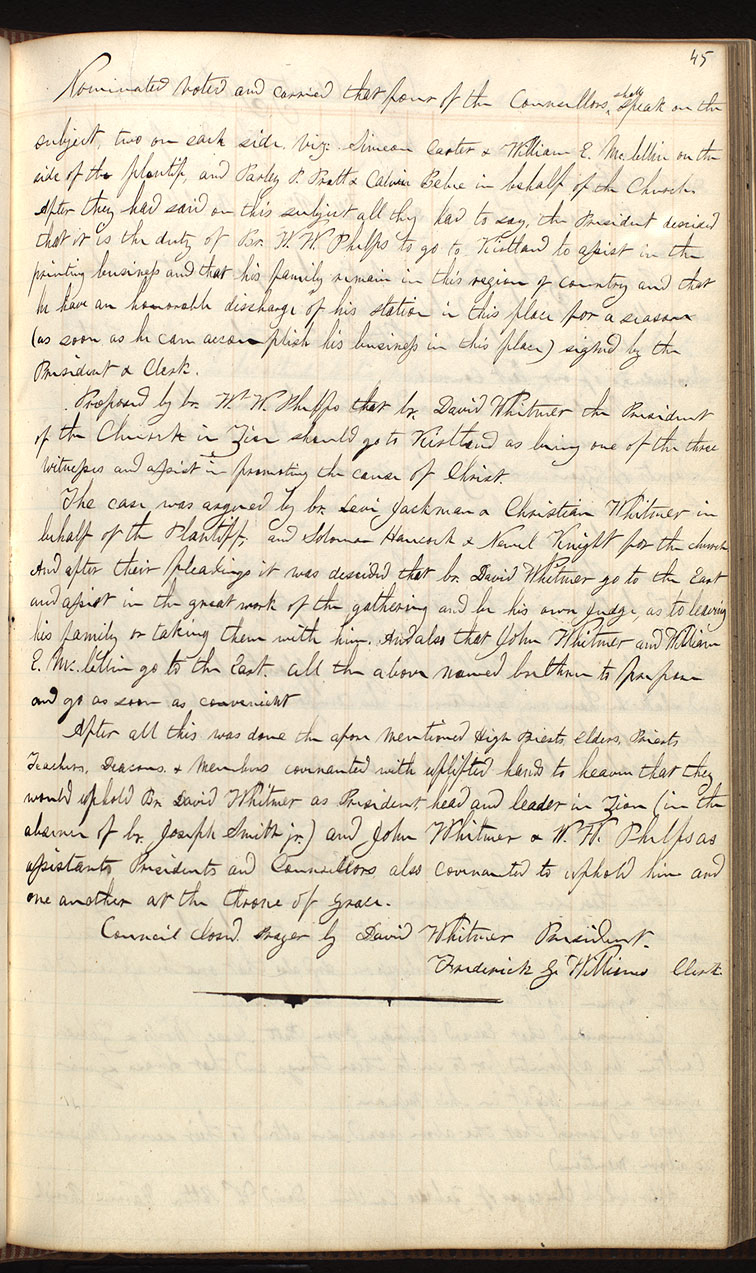 45
Nominated voted and carried that four of the Counsellors, shall speak on the
subject, two on each side. Viz: Simeon Carter & William E. Mc.lellin on the
side of the plantif, and Parley P. Pratt & Calvin Bebee in behalf of the Church
After they had said on this subject all they had to say, the President descised
that it is the duty of Br. W. W. Phelps to go to Kirtland to assist in the
printing business and that his family remain in this region of country and that
he have an honorable discharge of his station in this place for a season
(as soon as he can accomplish his business in this place) signed by the
President & Clerk.
Proposed by br. Wm W. Phelps that br. David Whitmer the President
of the Church in Zion should go to Kirtland as being one of the three
witnesses and assist in promoting the cause of Christ.
The case was argued by br. Levi Jackman & Christian Whitmer in
behalf of the Plantiff, and Solomon Hancock & Newel Knight for the church
And after their pleadings it was descided that br. David Whitmer go to the East
and assist in the great work of the gathering and be his own judge, as to leaving
his family or taking them with him. And also that John Whitmer and William
E. Mc.lellin go to the East. all the above named brethren to prepare
and go as soon as convenient
After all this was done the afore mentioned High Priests, Elders, Priests
Teachers, Deacons, & Members covenanted with uplifted hands to heaven that they
would uphold Br. David Whitmer as President head and leader in Zion (in the
absence of br. Joseph Smith jr.) and John Whitmer & W. W. Phelps as
assistants Presidents and Counsillors also covenanted to uphold him and
one another at the throne of grace.
Council closed. Prayer by David Whitmer President.
Frederick G. Williams Clerk